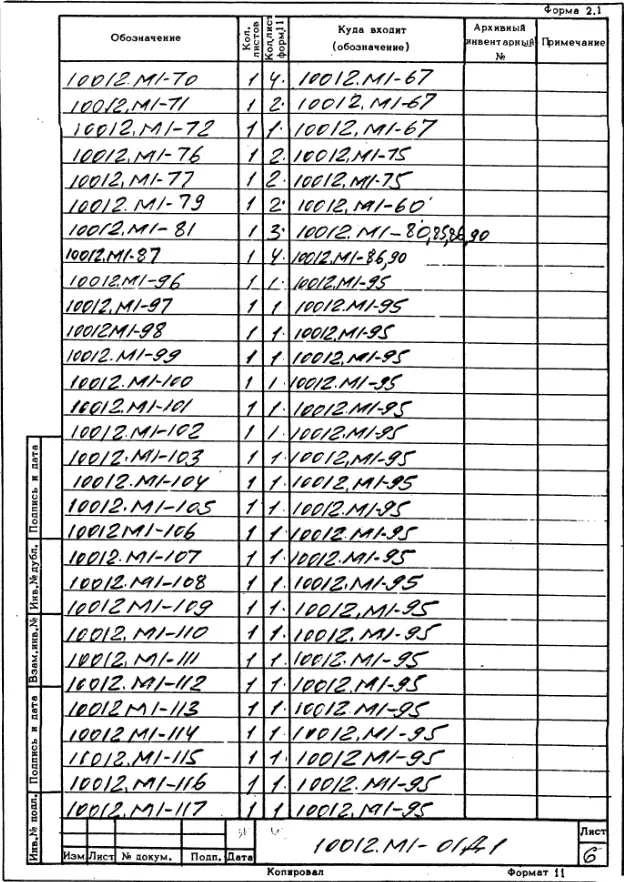 Форма 2.1
Обозначение Кол. листов Кол.лист форм.11 Куда входит (обозначение) Архивный инвентарный № Примечание
10012.М1-70 1 4. 10012.М1-67
10012.М1-71 1 2. 10012.М1-67
10012.М1-72 1 1. 10012.М1-67
10012.М1-76 1 2. 10012.М1-75
10012.М1-77 1 2. 10012.М1-75
10012.М1-79 1 2. 10012.М1-60
10012.М1-81 1 3. 10012.М1-80,85,86,90
10012.М1-87 1 4. 10012.М1-86,90
10012.М1-96 1 1. 10012.М1-95
10012.М1-97 1 1 10012.М1-95
10012М1-98 1 1. 10012.М1-95
10012.М1-99 1 1. 10012.М1-95
10012.М1-100 1 1. 10012.М1-95
10012.М1-101 1 1. 10012.М1-95
10012.М1-102 1 1. 10012.М1-95
10012.М1-103 1 1. 10012.М1-95
10012.М1-104 1 1. 10012.М1-95
10012.М1-105 1 1. 10012.М1-95
10012М1-106 1 1. 10012.М1-95
10012.М1-107 1 1. 10012.М1-95
10012.М1-108 1 1. 10012.М1-95
10012М1-109 1 1. 10012.М1-95
10012.М1-110 1 1. 10012.М1-95
10012.М1-111 1 1. 10012.М1-95
10012.М1-112 1 1. 10012.М1-95
10012М1-113 1 1. 10012.М1-95
10012.М1-114 1 1. 10012.М1-95
10012.М1-115 1 1. 10012М1-95
10012.М1-116 1 1. 10012.М1-95
10012.М1-117 1 1 10012.М1-95
Подпись и дата
Инв.№ дубл.
Взам.инв.№
Подпись и дата
Инв.№ подл.
Изм Лист № докум. Подп. Дата
10012.М1-01Д1
Лист
6
Копировал Формат 11